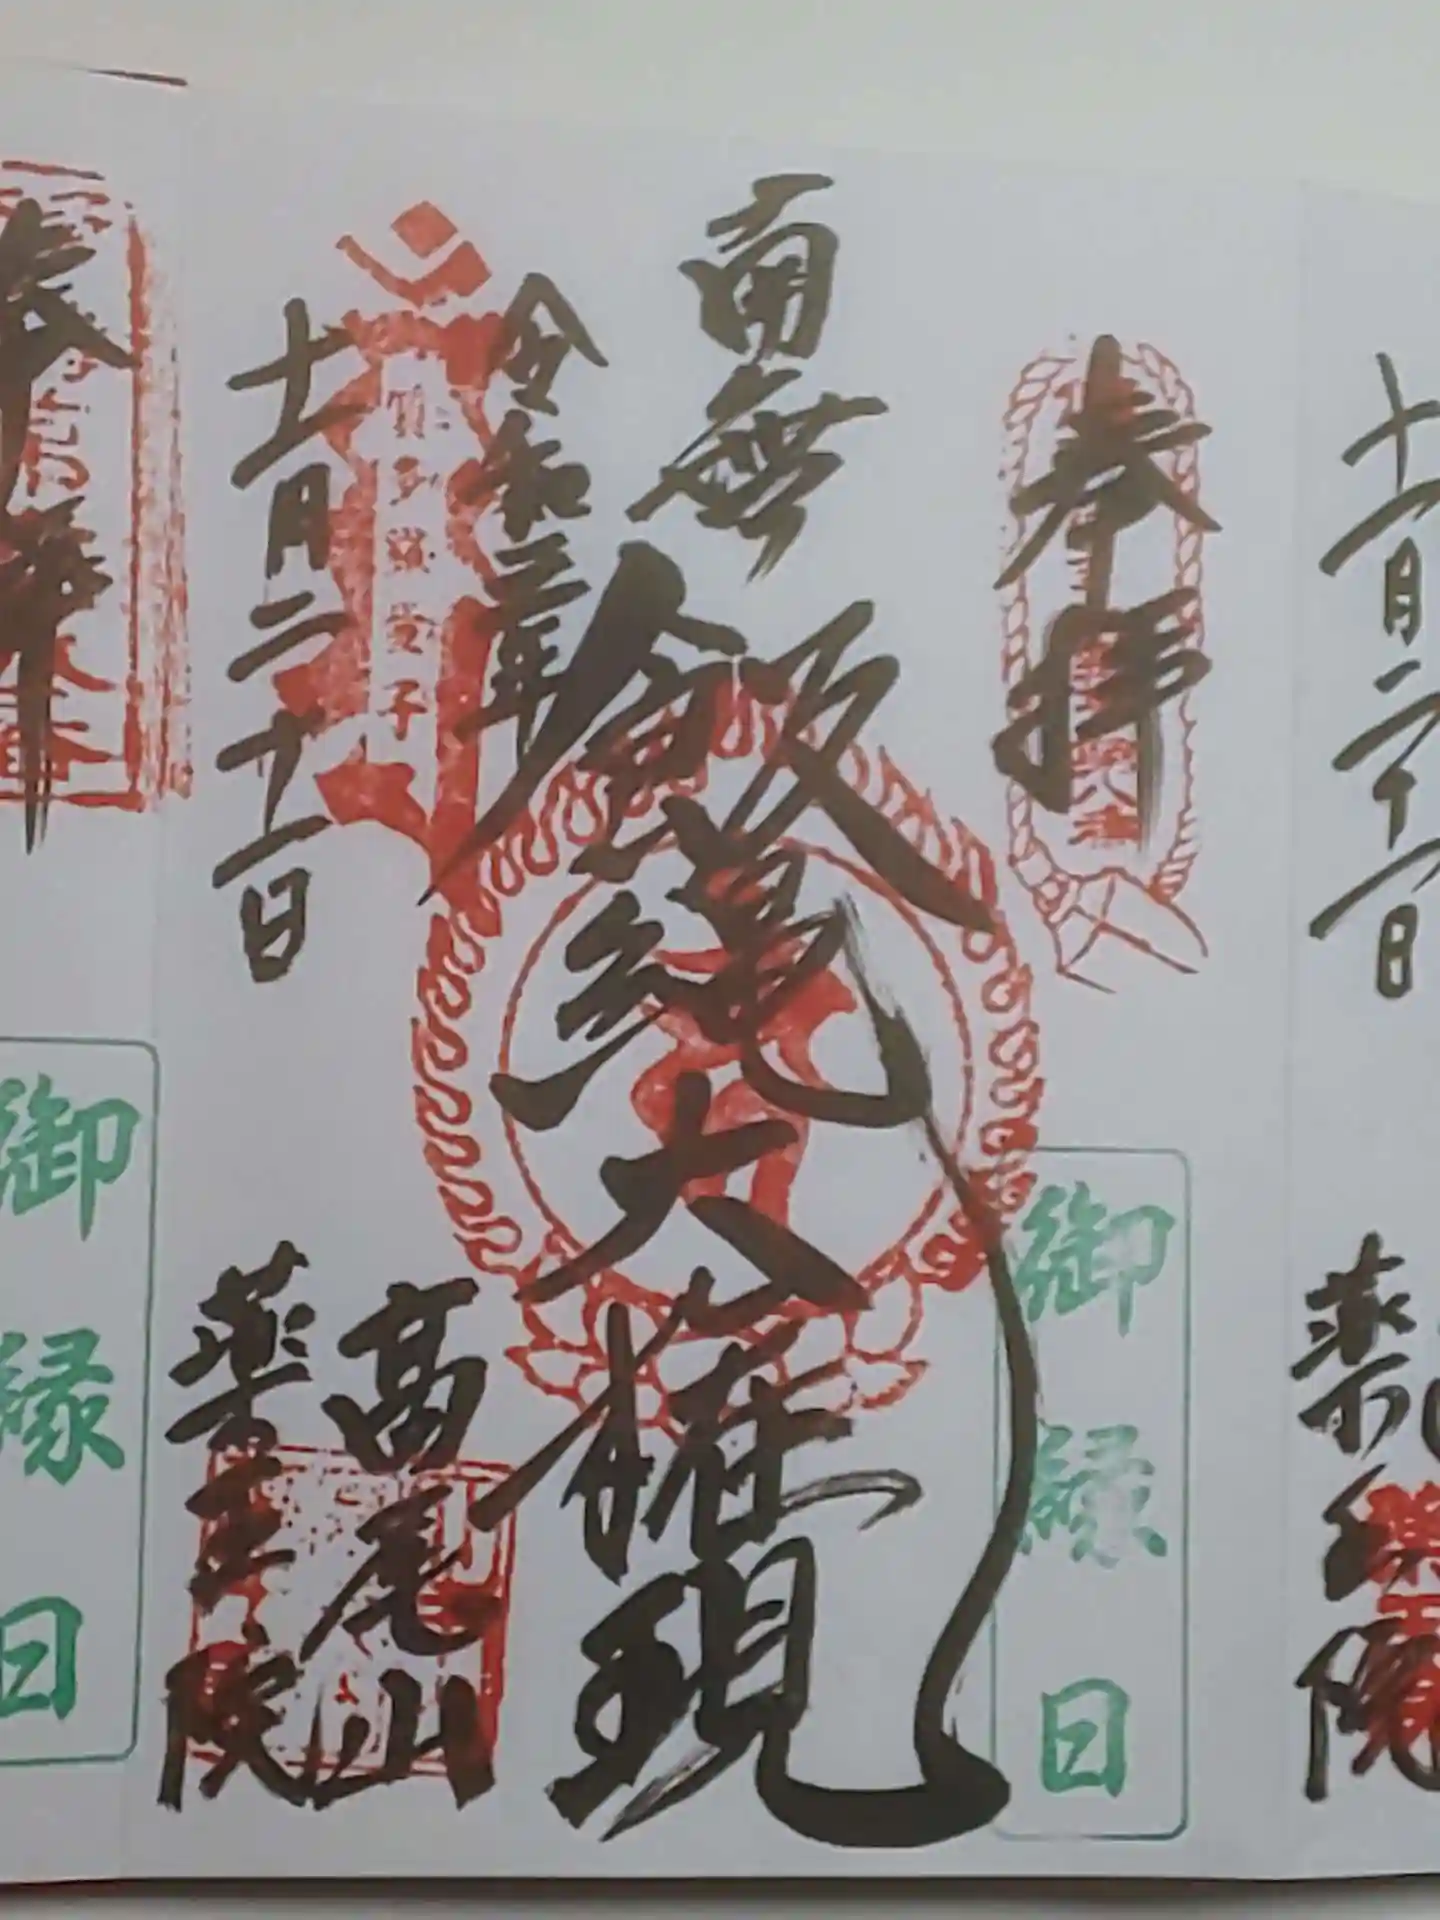 七月二十一日
薬王院
奉拝
御縁日
南無
飯縄大権現
令和三年
七月二十一日
高尾山
薬王院
奉拝
御縁日